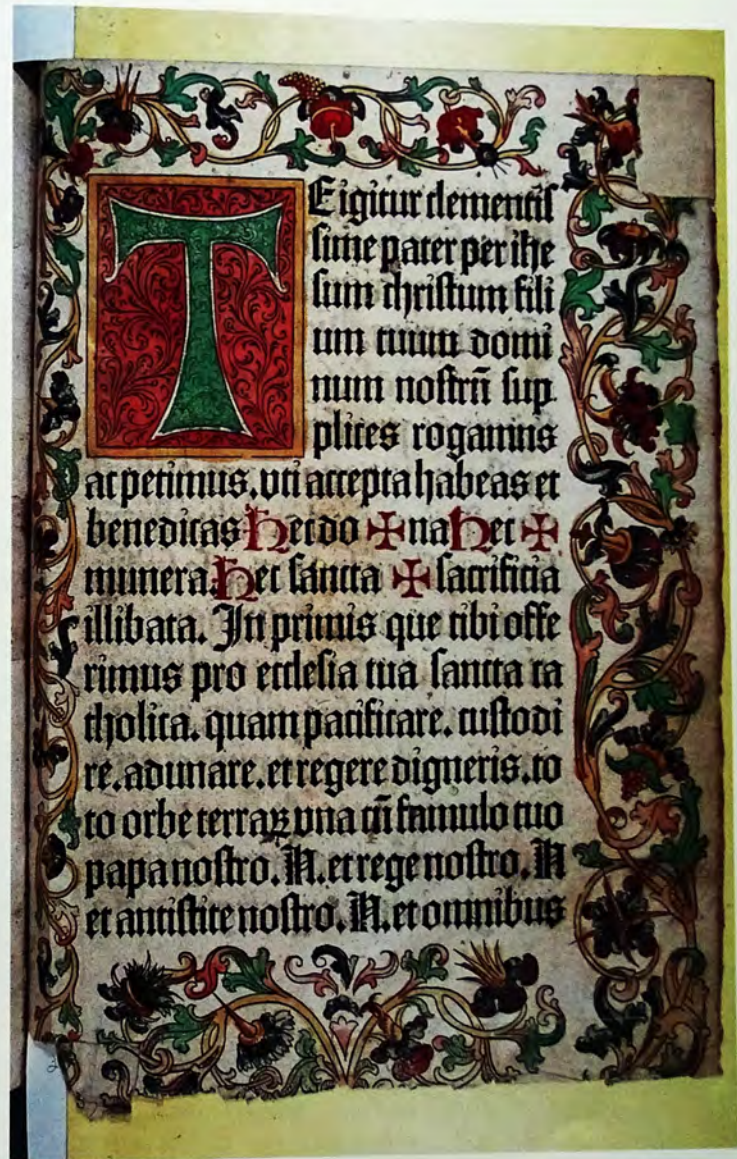 TE igitur clementis
sime pater per ihe
sum christum fili
um tuum domi
num nostrū sup
plices rogamus
ac petimus. vti accepta habeas et
benedicas hec do ✠ na hec ✠
munera. hec sancta ✠ sacrificia
illibata. In primis que tibi offe
rimus pro ecclesia tua sancta ca
tholica. quam pacificare. custodi
re. adunare. et regere digneris. to
to orbe terraꝝ vna cū famulo tuo
papa nostro. N. et rege nostro. N
et antistite nostro. N. et omnibus